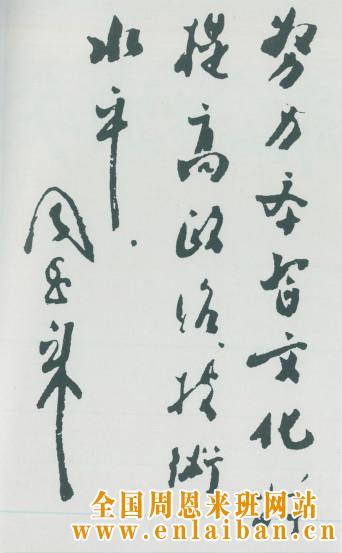 努力学習文化
提高政治、技術
水平.
周恩来
全国周恩来班网站
www.enlaiban.cn